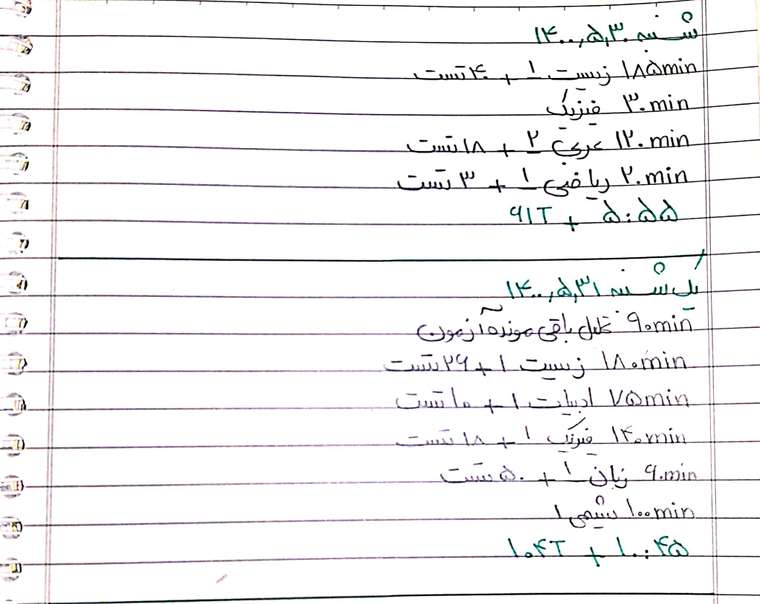 شنبه ۱۴۰۰,۵,۳۰
۱۸۵min زیست ۱ + ۴۰ تست
۳۰min فیزیک
۱۲۰min عربی ۲ + ۱۸ تست
۲۰min ریاضی ۱ + ۳ تست
۶۱T + ۵:۵۵
یک شنبه ۱۴۰۰,۵,۳۱
۹۰min تحلیل باقی مونده آزمون
۱۸۰min زیست ۱ + ۲۶ تست
۷۵min ادبیات ۱ + ۱۰ تست
۱۴۰min فیزیک ۱ + ۱۸ تست
۶۰min زبان ۱ + ۵۰ تست
۱۰۰min شیمی ۱
۱۰۴T + ۱۰:۴۵